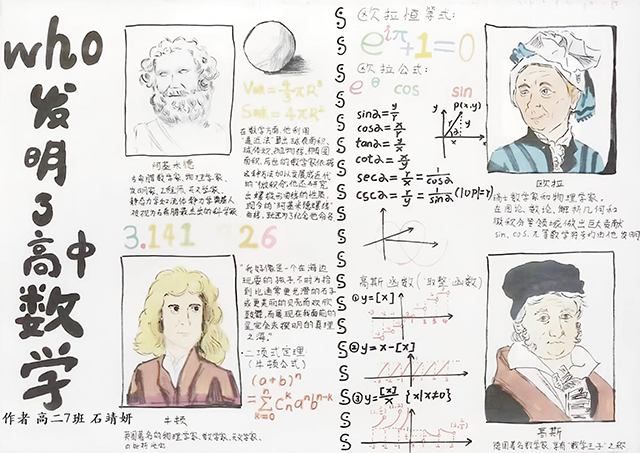 who
发
明
了
高中
数
学
作者 高二7班 石靖妍
阿基米德
古希腊数学家、物理学家、
发明家、工程师、天文学家、
静态力学和流体静力学奠基人
被视为古希腊最杰出的科学家
V球=4/3πR³
S球=4πR²
在数学方面,他利用
"逼近法"算出球表面积、
球体积、抛物线、椭圆
面积,后世的数学家依据
这种方法加以发展成近代
的"微积分",他还研究
出螺旋形曲线的性质,
现今的"阿基米德螺线"
曲线,就是为纪念他命名
3.141 926
"我好像是一个在海边
玩耍的孩子,不时为拾
到比通常更光滑的石子
或更美丽的贝壳而欢欣
鼓舞,而展现在我面前的
是完全未探明的真理
之海。"
二项式定理
(牛顿公式)
(a+b)ⁿ
=∑ Cₙᵏ aⁿ bⁿ⁻ᵏ
k=0
牛顿
英国著名的物理学家、数学家、天文学家、
欧拉恒等式:
e^iπ+1=0
欧拉公式:
e θ cos sin
sinα=y/r
cosα=x/r
tanα=y/x
cotα=x/y
secα=r/x=1/cosα
cscα=r/y=1/sinα (|OP|=r)
P(x,y)
欧拉
瑞士数学家和物理学家、
在图论、数论、解析几何和
微积分等领域做出巨大贡献
sin、cos、π等数学符号均由他发明
高斯函数(取整函数)
①y=[x]
②y=x-[x]
③y=[x]/x {x|x≠0}
高斯
德国著名数学家,享有"数学王子"之称